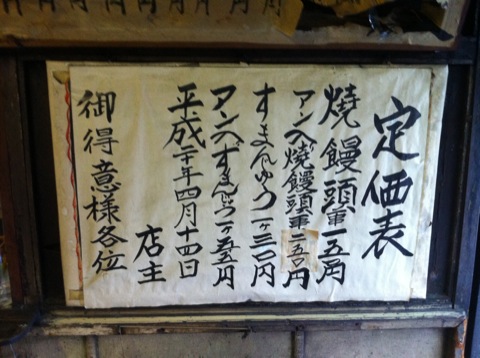 定価表
燒饅頭一串一五〇円
アン入燒饅頭一串二五〇円
すまんじゅう一ヶ一三〇円
アン入すまんじゅう一ヶ一五五円
平成二十年四月十四日
店主
御得意様各位